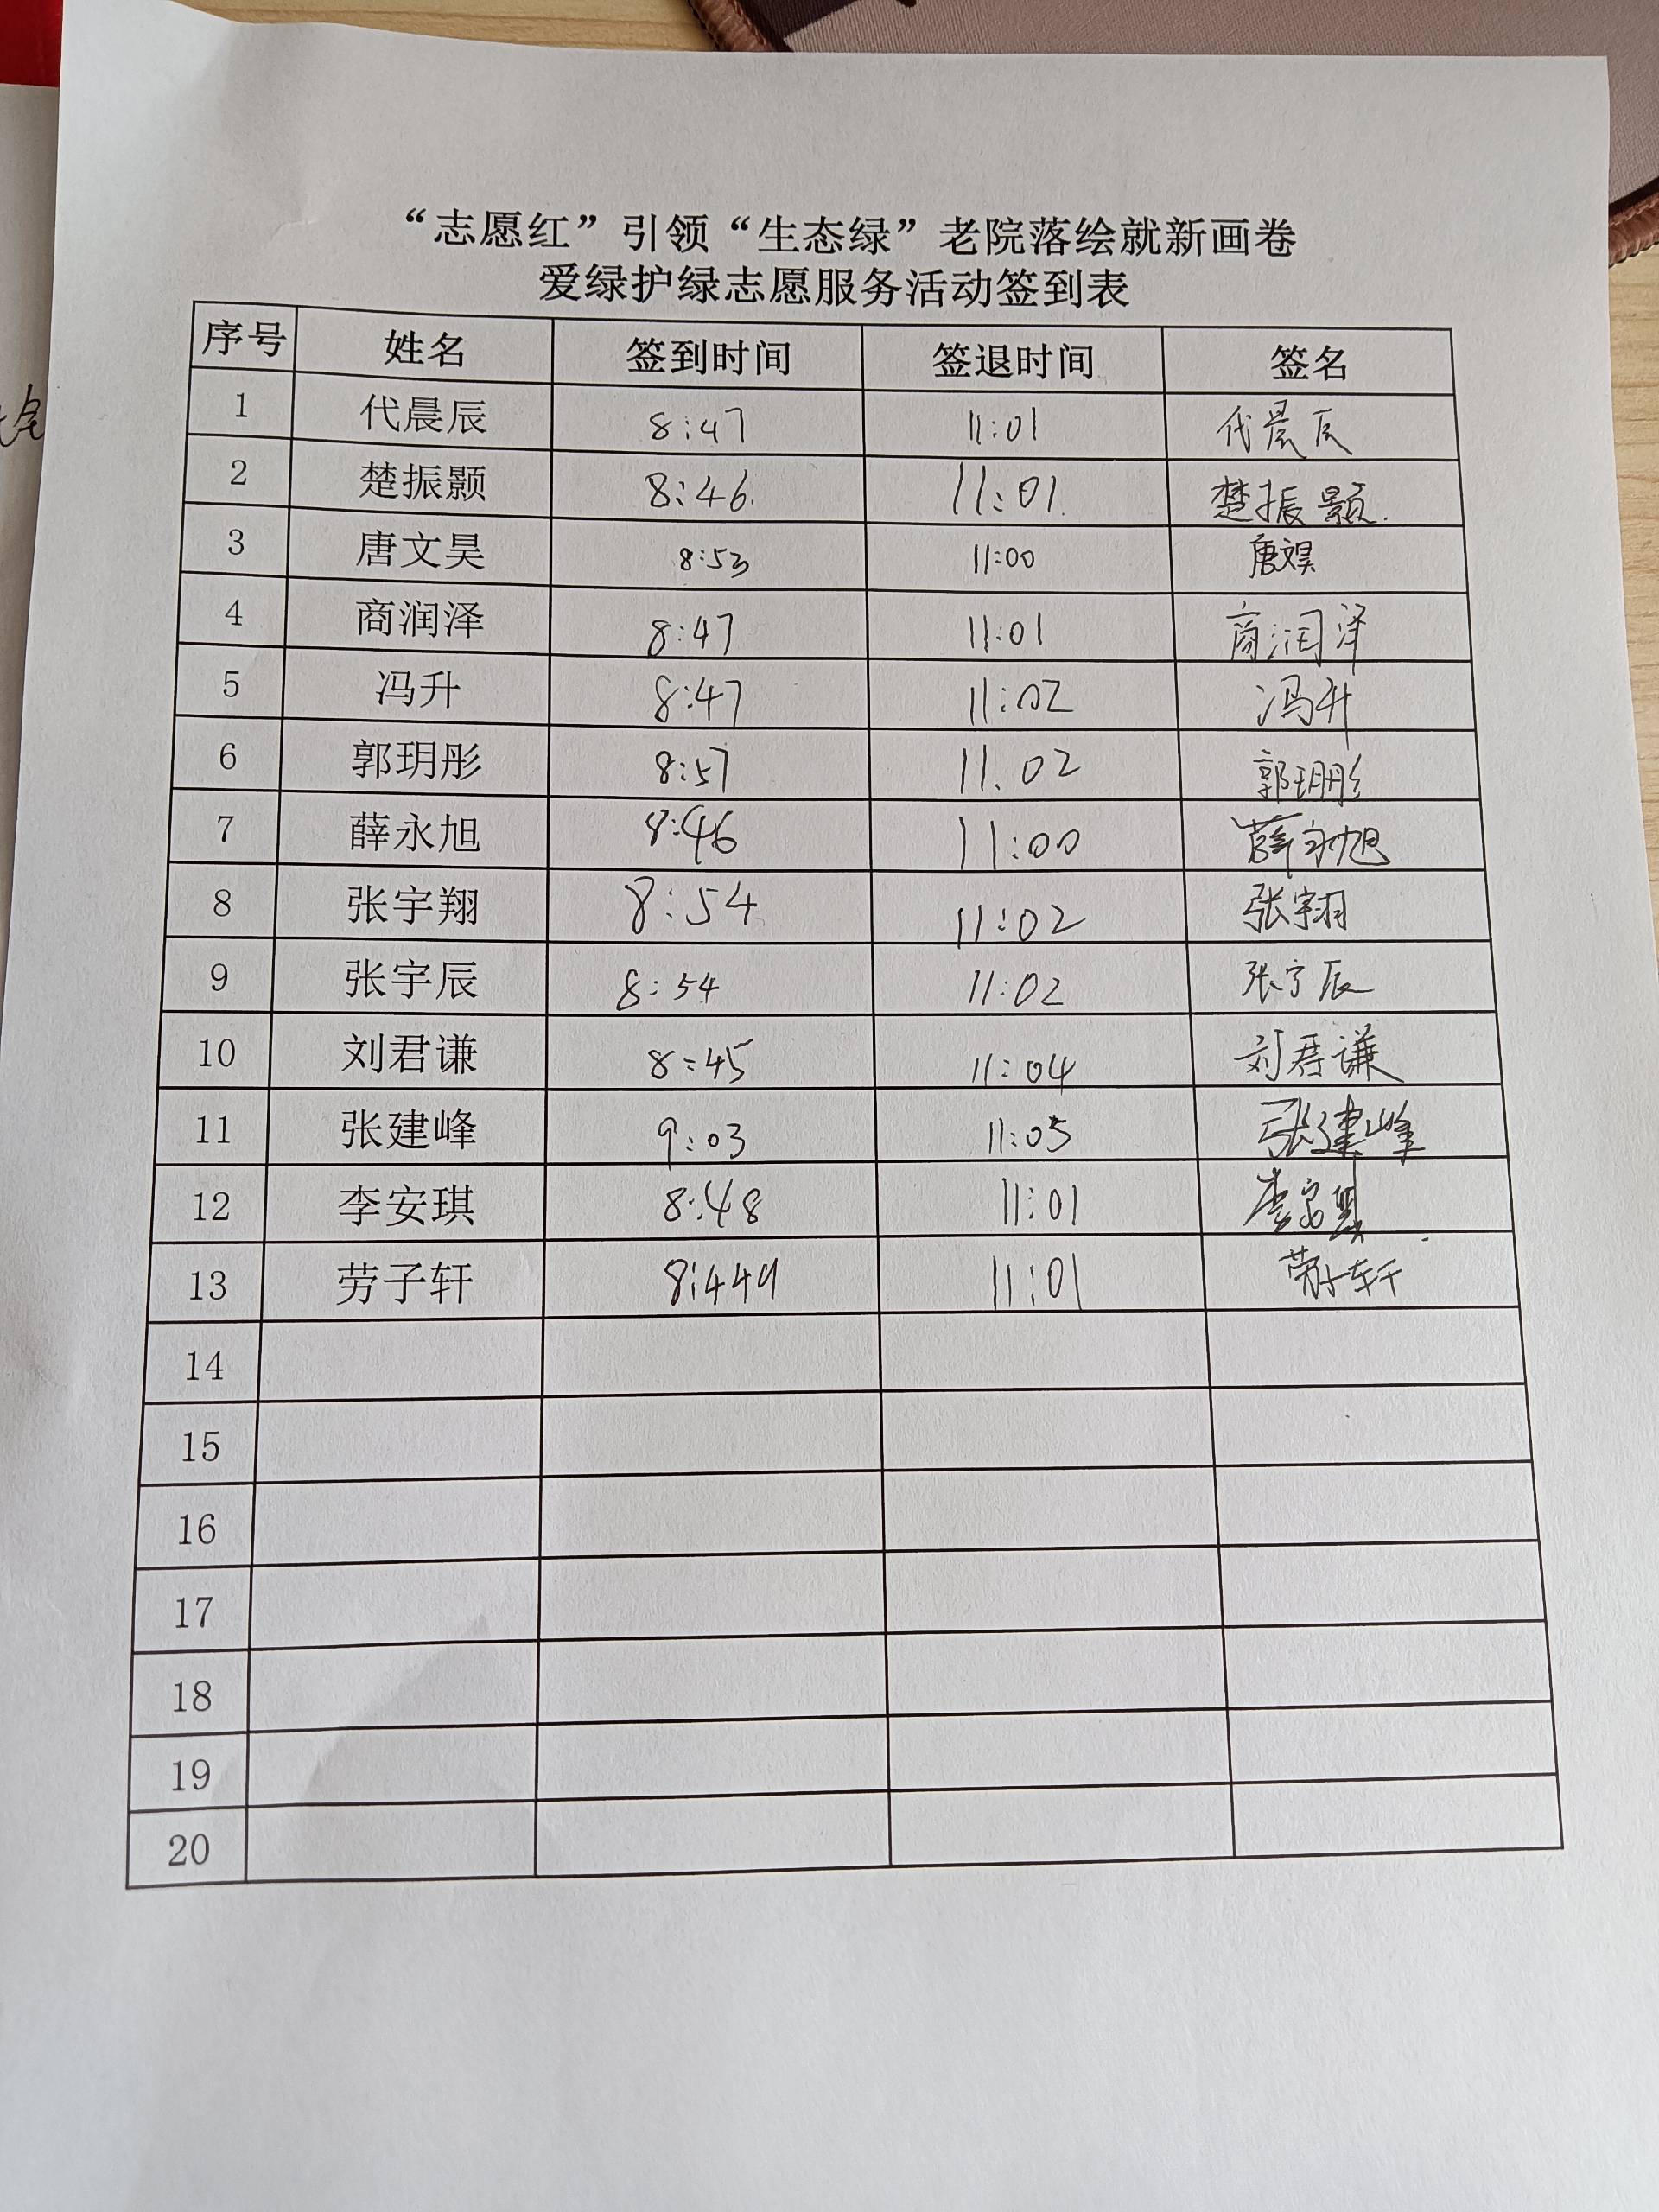 “志愿红”引领“生态绿”老院落绘就新画卷
爱绿护绿志愿服务活动签到表
序号 姓名 签到时间 签退时间 签名
1 代晨辰 8:47 11:01 代晨辰
2 楚振颢 8:46. 11:01. 楚振颢.
3 唐文昊 8:53 11:00 唐文昊
4 商润泽 8:47 11:01 商润泽
5 冯升 8:47 11:02 冯升
6 郭玥彤 8:57 11.02 郭玥彤
7 薛永旭 8:46 11:00 薛永旭
8 张宇翔 8:54 11:02 张宇翔
9 张宇辰 8:54 11:02 张宇辰
10 刘君谦 8:45 11:04 刘君谦
11 张建峰 9:03 11:05 张建峰
12 李安琪 8:48 11:01 李安琪
13 劳子轩 8:449 11:01 劳子轩
14
15
16
17
18
19
20